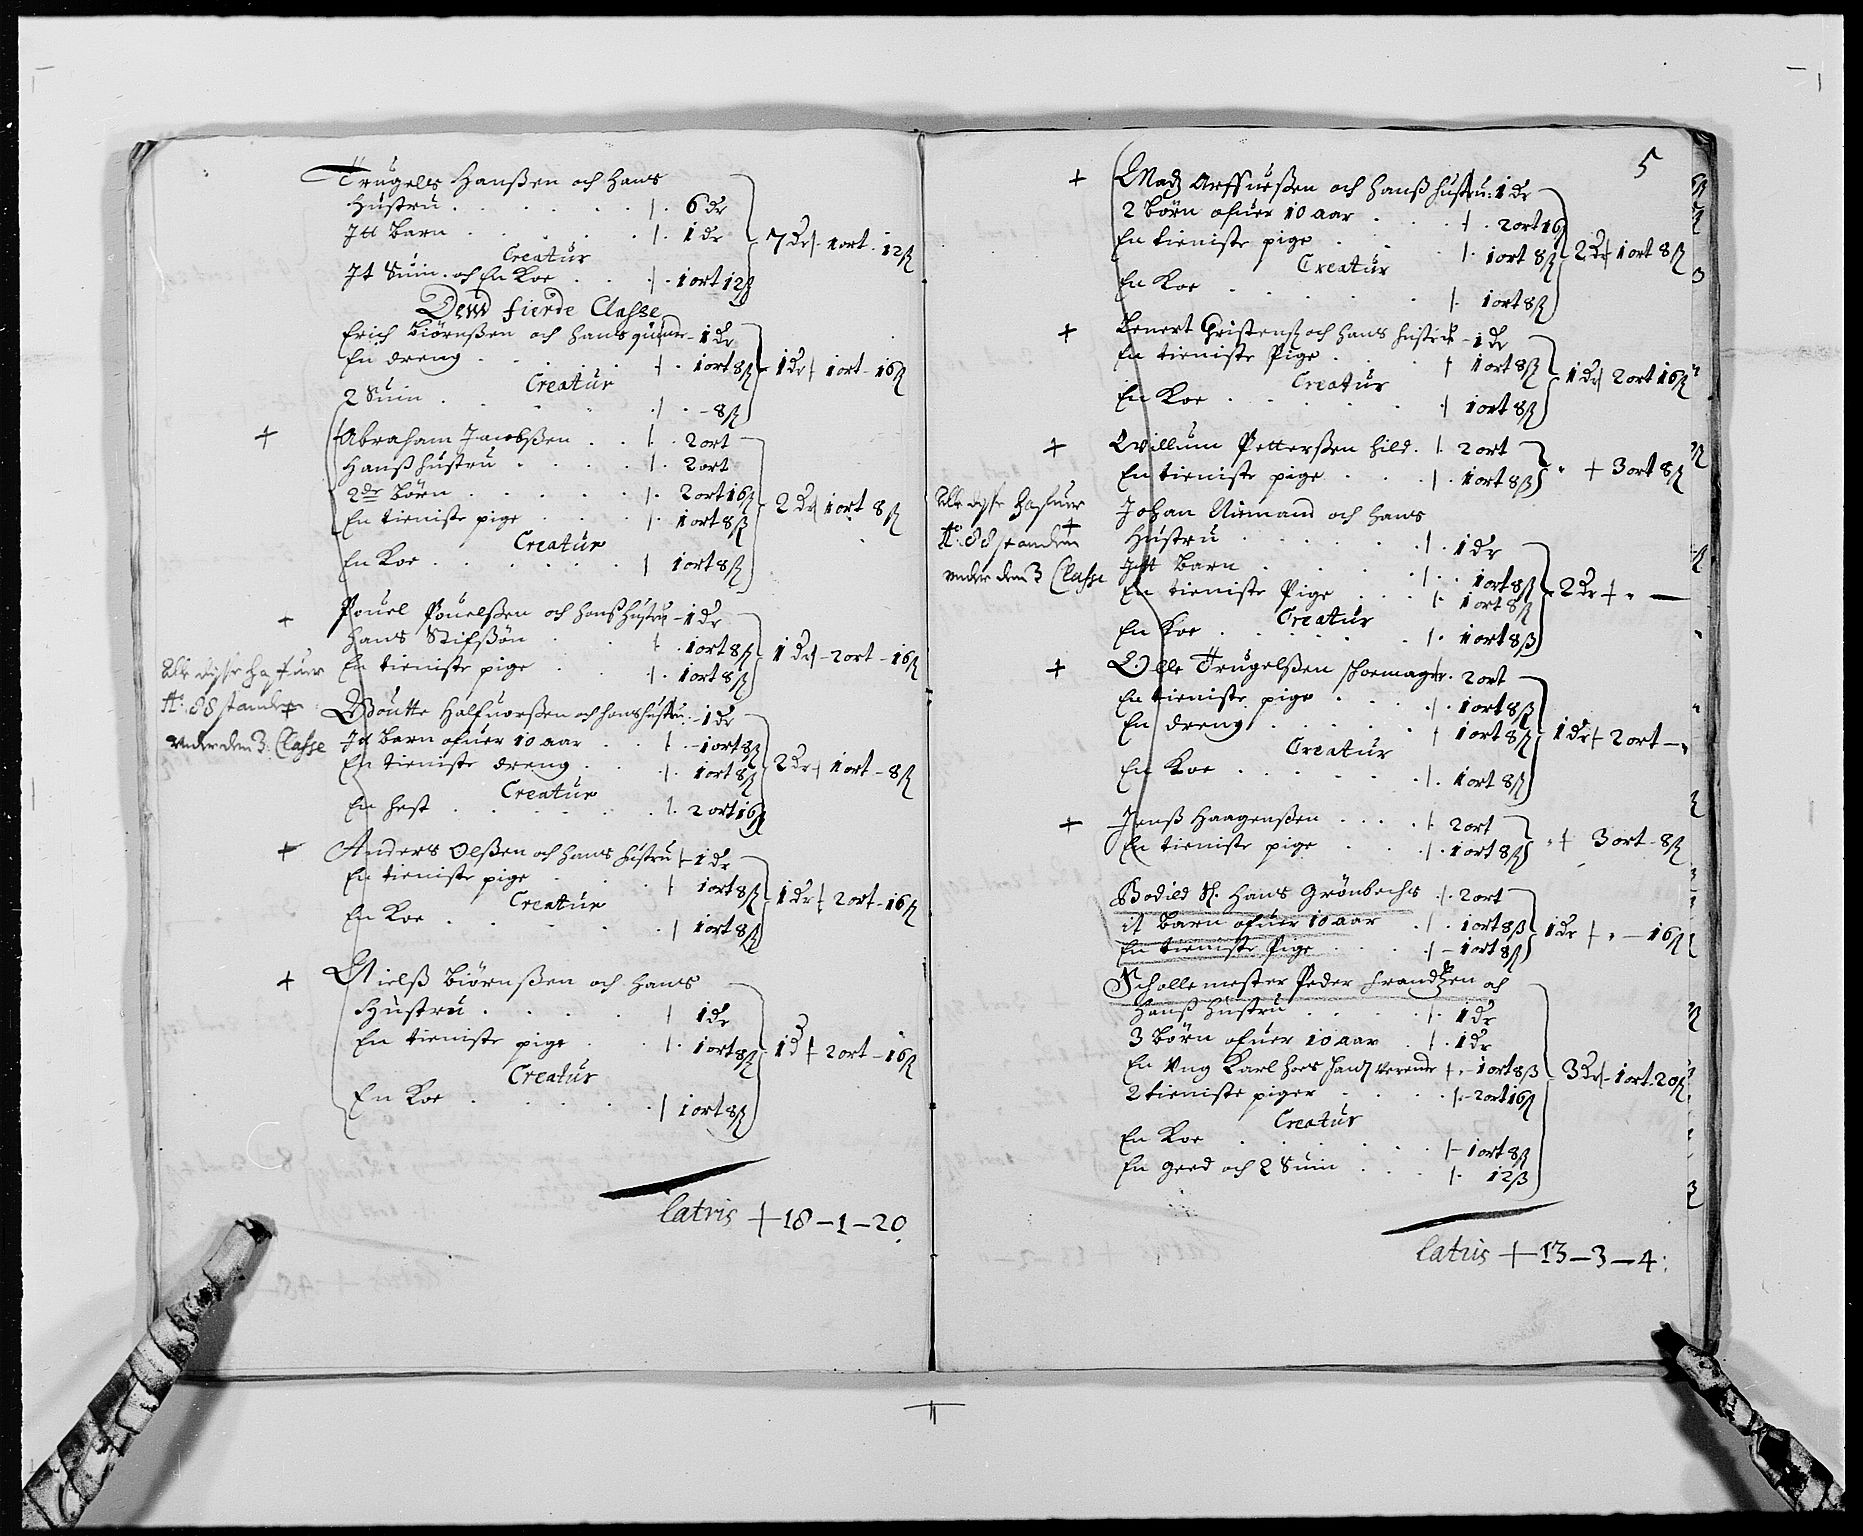 Trugels Hanßen och hans
Hustru . . . . . . . 6 dr
Itt Barn . . . . . . 1 dr } 7 Dr - 1 ort - 12 ß
Creatur
It Suin och En Koe . . 1 ort 12 ß
Dend fierde Classe
Erich Biörnßen och Hans quinde - 1 dr
En dreng . . . . . 1 ort 8 ß } 1 dr 1 ort - 16 ß
Creatur
2 Suin . . . . . - 8 ß
+ Abraham Jacobßen . . 2 ort
Hanß hustru . . . . 2 ort
2de Börn . . . . . 2 ort 16 ß
En tieniste pige . . . 1 ort 8 ß } 2 Dr 1 ort 8 ß
Creatur
En Koe . . . . . 1 ort 8 ß
+ Pouel Pouelßen och Hanß Hustru - 1 dr
Hans Stifsön . . . 1 ort 8 ß } 1 dr - 2 ort - 16 ß
En tieniste pige . . . 1 ort 8 ß
Alle disse hafuer
Ao: 88 standen
under dem 3. Classe
+ Goutte Halfuorßen och hans hustru - 1 dr
It barn ofuer 10 aar . . - 1 ort 8 ß
En tieniste dreng . . . 1 ort 8 ß } 2 Dr 1 ort - 8 ß
Creatur
En hest . . . . . 2 ort 16 ß
+ Anders Olßen och hans hustru - 1 dr
En tieniste pige . . . 1 ort 8 ß } 1 dr 2 ort - 16 ß
Creatur
En Koe . . . . . 1 ort 8 ß
+ Nielß Biörnßen och Hans
Hustru . . . . . 1 dr
En tieniste pige . . . 1 ort 8 ß } 1 d 2 ort - 16 ß
Creatur
En Koe . . . . . 1 ort 8 ß
latris + 18 - 1 - 20
5
+ Madz Arffueßen och Hanß hustru: 1 dr
2 börn ofuer 10 aar . . . 2 ort 16
En tieniste pige . . . 1 ort 8 ß } 2 Dr 1 ort 8 ß
Creatur
En Koe . . . . . 1 ort 8 ß
+ Lenert Christenß och Hans hustru - 1 dr
En tieniste Pige . . . 1 ort 8 ß } 1 dr 2 ort 16 ß
Creatur
En Koe . . . . . 1 ort 8 ß
+ Willum Petterßen hild. 2 ort
En tieniste pige . . . 1 ort 8 ß } + 3 ort 8 ß
Alle disse hafuer
Ao: 88 standen
under dem 3 Classe
+ Johan Niemand och Hans
Hustru . . . . . 1 dr
Itt Barn . . . . . 1 ort 8 ß
En tieniste Pige . . . 1 ort 8 ß } 2 Dr + " —
Creatur
En Koe . . . . . 1 ort 8 ß
+ Olle Trugelßen skoemager. 2 ort
En tieniste pige . . . 1 ort 8 ß
En dreng . . . . . 1 ort 8 ß } 1 dr + 2 ort —
Creatur
En Koe . . . . . 1 ort 8 ß
+ Jenß Haagenßen . . . 2 ort
En tieniste pige . . . 1 ort 8 ß } " + 3 ort - 8 ß
Bodild Sl. Hans Grönbechs . 2 ort
it barn ofuer 10 aar . . 1 ort 8 ß } 1 dr + " — 16 ß
En tieniste Pige . . . - 1 ort 8 ß
Schollemester Peder Frandtzen och
Hanß hustru . . . . 1 dr
3 börn ofuer 10 aar . . 1 dr
En Ung Karl hoes hanß verende + - 1 ort 8 ß } 3 Dr - 1 ort - 20 ß
2 tieniste piger . . . - 2 ort 16 ß
Creatur
En Koe . . . . . - 1 ort 8 ß
En geed och 2 Suin . . . 12 ß
latus + 13 - 3 - 4: